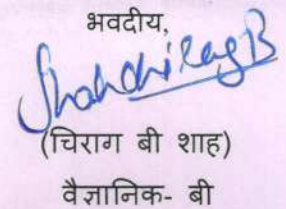 भवदीय,
Shah Chirag B
(चिराग बी शाह)
वैज्ञानिक- बी